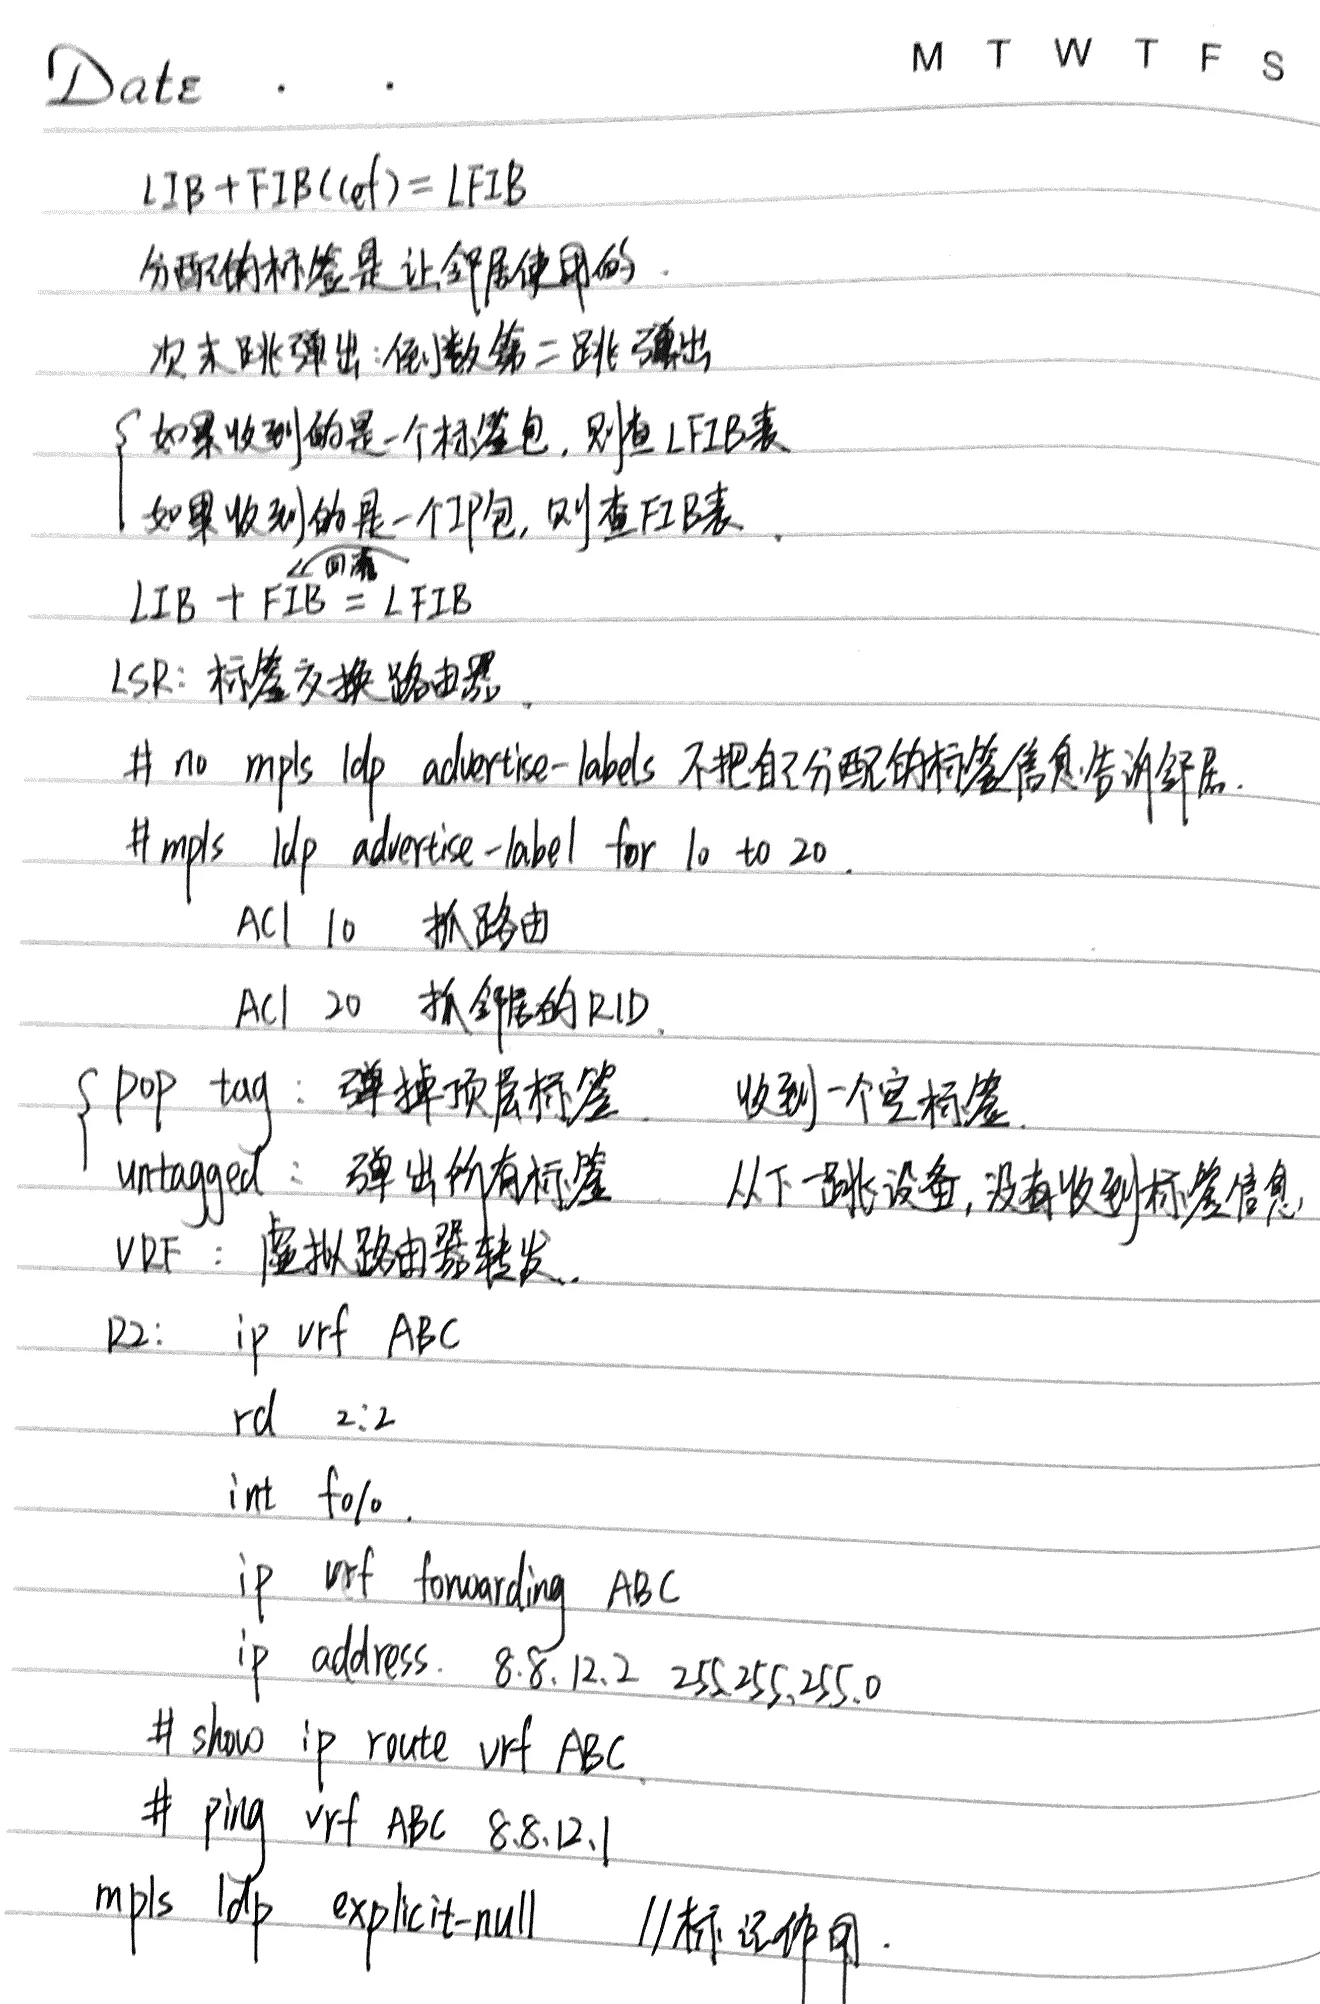 Date . .
M T W T F S
LIB+FIB(cef)=LFIB
分配的标签是让邻居使用的.
次末跳弹出:倒数第二跳弹出
{如果收到的是一个标签包,则查LFIB表
如果收到的是一个IP包,则查FIB表.
回流
LIB + FIB = LFIB
LSR: 标签交换路由器.
# no mpls ldp advertise-labels 不把自己分配的标签信息告诉邻居.
#mpls ldp advertise-label for 10 to 20.
ACl 10 抓路由
ACl 20 抓邻居的RID.
{pop tag: 弹掉顶层标签. 收到一个空标签.
untagged: 弹出所有标签 从下一跳设备,没有收到标签信息.
VRF: 虚拟路由器转发.
R2: ip vrf ABC
rd 2:2
int f0/0.
ip vrf forwarding ABC
ip address. 8.8.12.2 255.255.255.0
# show ip route vrf ABC.
# ping vrf ABC 8.8.12.1
mpls ldp explicit-null //标记作用.